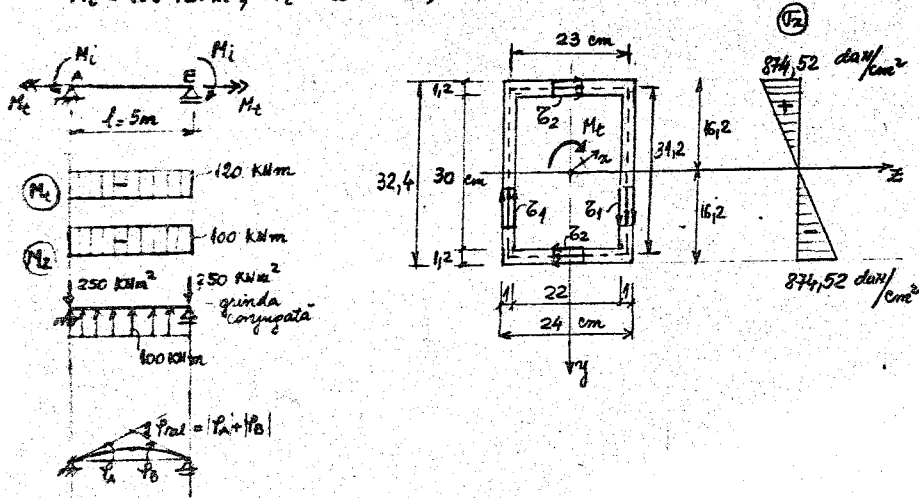 M_i M_i
A B
M_t M_t
l = 5m
M_t 120 KNm
M_z 100 KNm
250 KNm² 250 KNm²
grinda
conjugată
100 KNm
φ_rel = |φ_A| + |φ_B|
φ_A φ_B
23 cm
1,2
τ_2
M_t
x
32,4 30 cm 31,2
τ_1 τ_1
τ_2
1,2
1 22 1
24 cm
y
σ_x
874,52 daN/cm²
16,2
+
z
16,2
-
874,52 daN/cm²